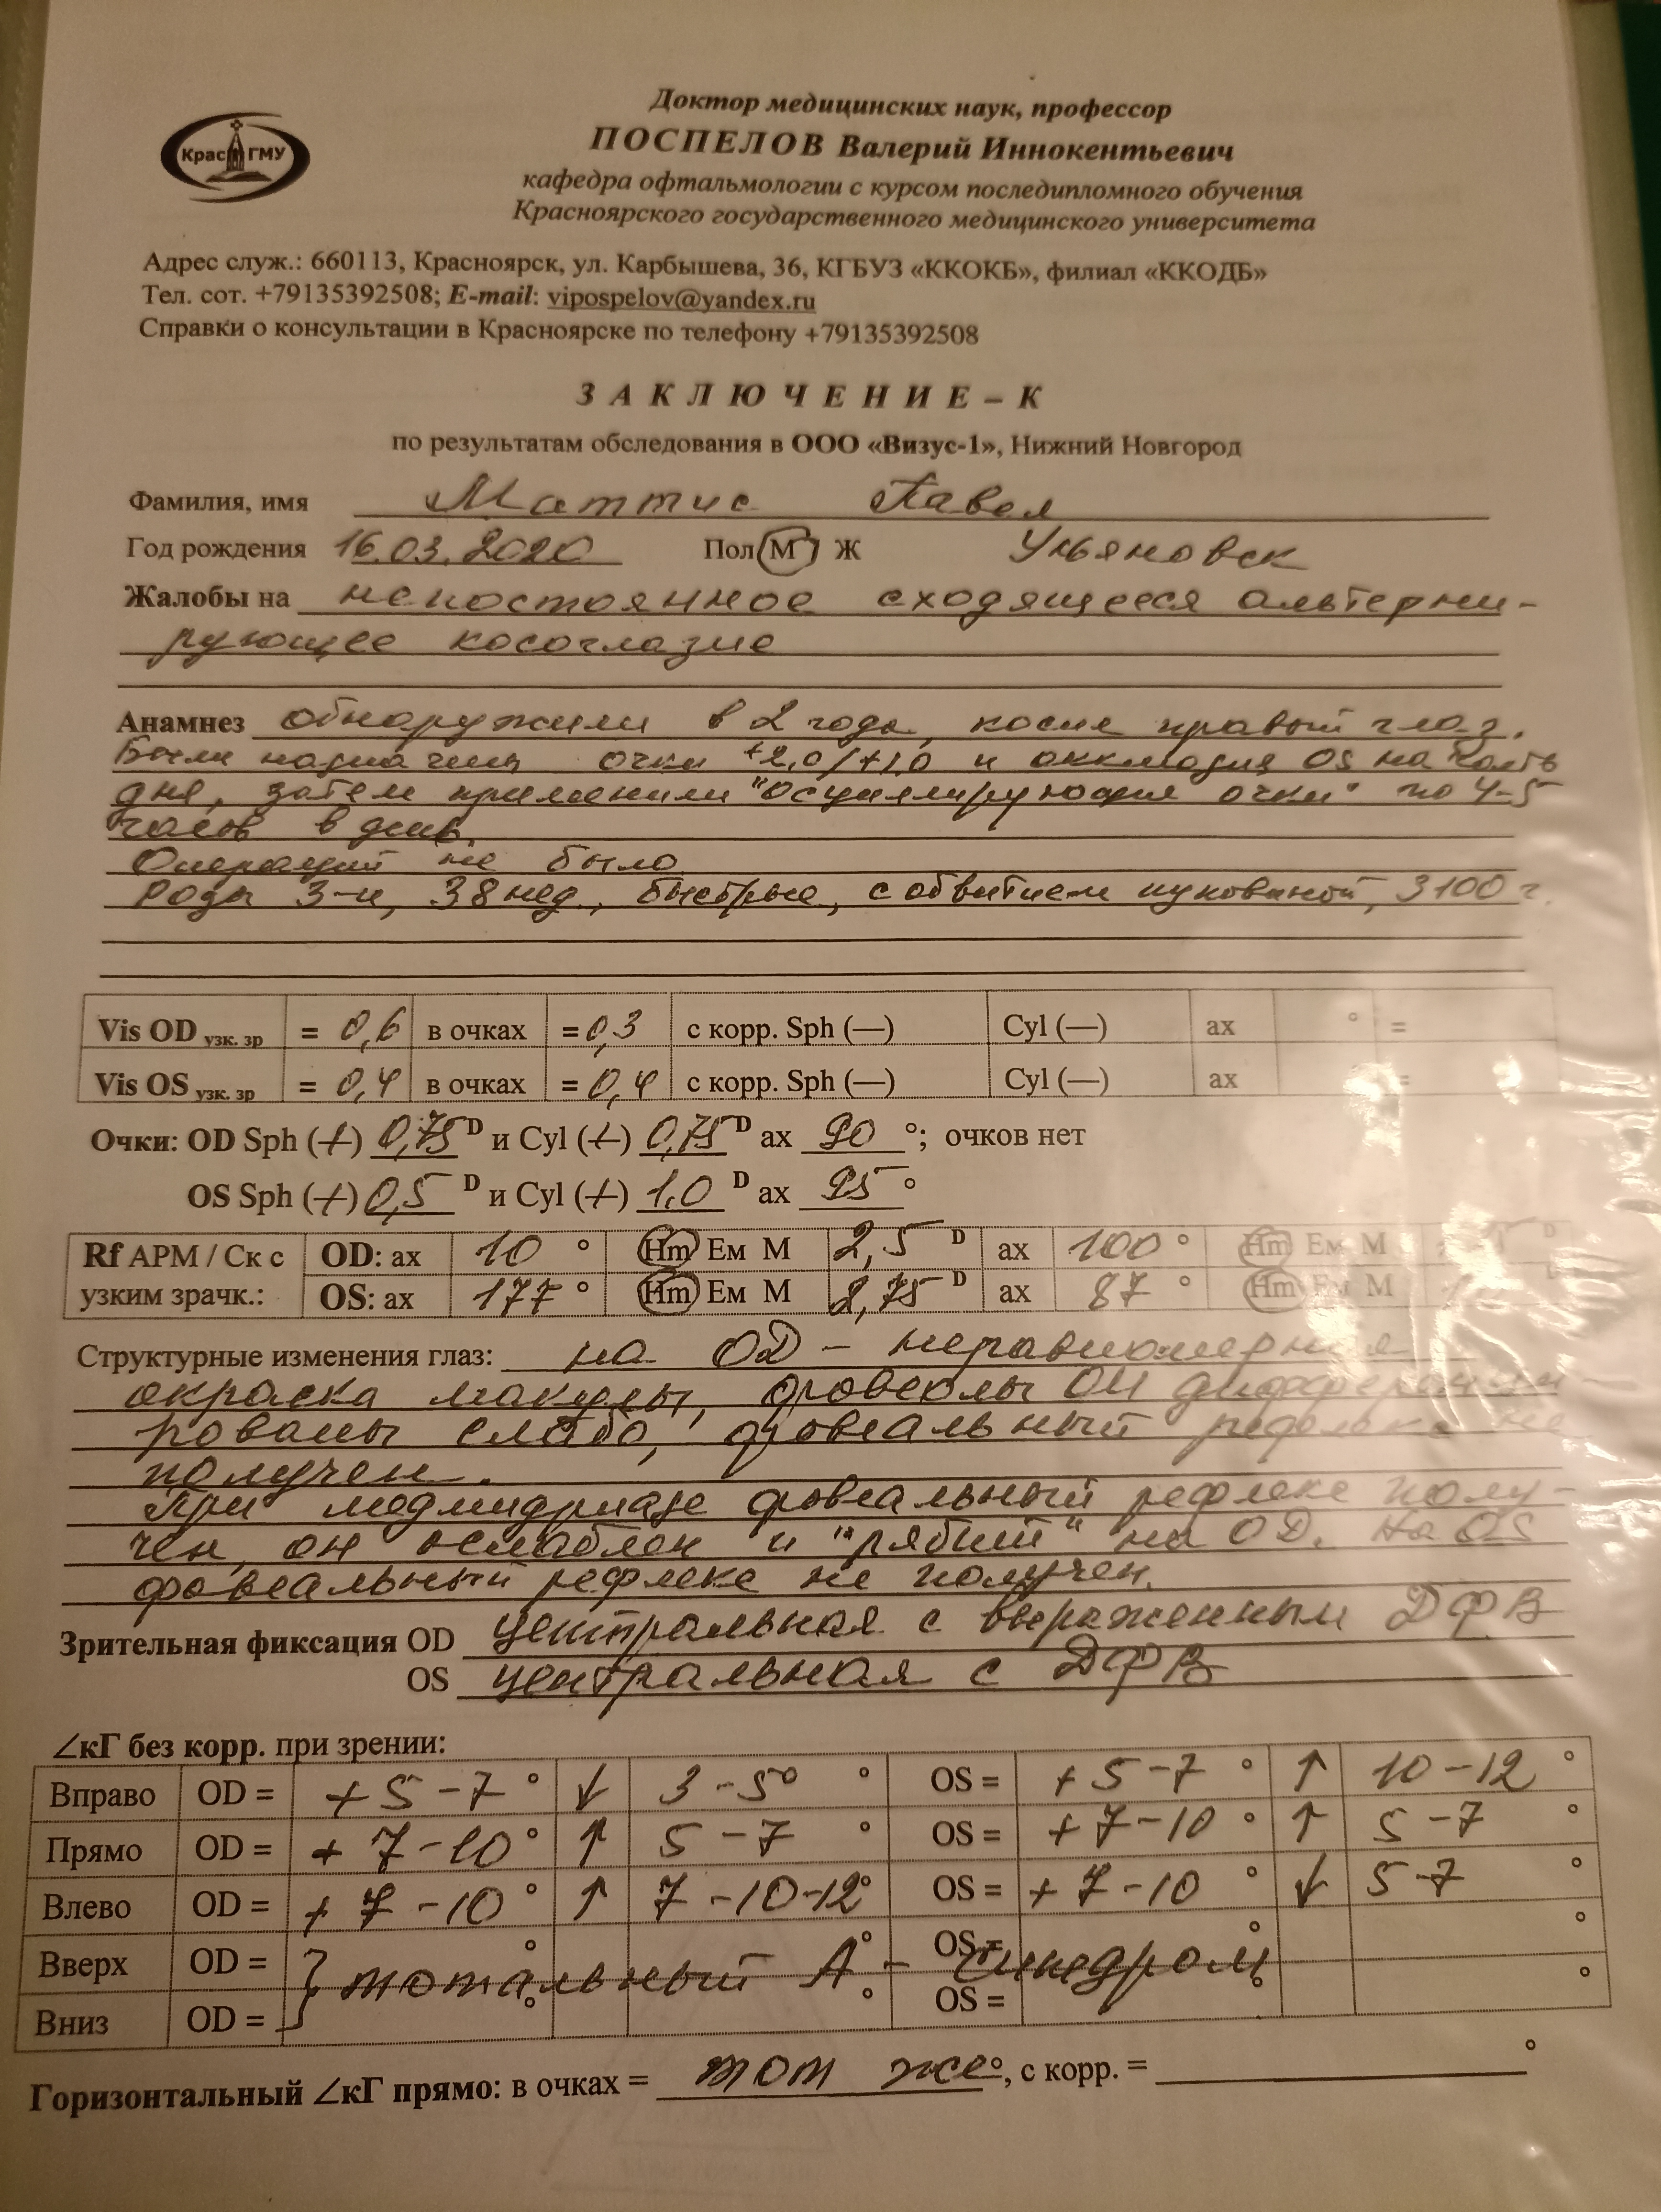 Доктор медицинских наук, профессор
ПОСПЕЛОВ Валерий Иннокентьевич
КрасГМУ
кафедра офтальмологии с курсом последипломного обучения
Красноярского государственного медицинского университета
Адрес служ.: 660113, Красноярск, ул. Карбышева, 36, КГБУЗ «ККОКБ», филиал «ККОДБ»
Тел. сот. +79135392508; E-mail: vipospelov@yandex.ru
Справки о консультации в Красноярске по телефону +79135392508
ЗАКЛЮЧЕНИЕ – К
по результатам обследования в ООО «Визус-1», Нижний Новгород
Фамилия, имя Маттис Павел
Год рождения 16.03.2020 Пол М Ж Ульяновск
Жалобы на непостоянное сходящееся альтерни-
рующее косоглазие
Анамнез обнаружили в 2 года, косил правый глаз.
Были назначены очки +2,0/+1,0 и окклюзия OS на часть
дня, затем применили "осциллирующие очки" по 4-5
часов в день.
Операций не было
Роды 3-и, 38 нед., быстрые, с обвитием пуповиной, 3100 г.
Vis OD узк. зр = 0,6 в очках = 0,3 с корр. Sph (—) Cyl (—) ax ° =
Vis OS узк. зр = 0,4 в очках = 0,4 с корр. Sph (—) Cyl (—) ax =
Очки: OD Sph (+) 0,75 D и Cyl (+) 0,75 D ax 90 °; очков нет
OS Sph (+) 0,5 D и Cyl (+) 1,0 D ax 95 °
Rf АРМ / Ск с OD: ax 10 ° Hm Ем М 2,5 D ax 100 ° Hm Ем М D
узким зрачк.: OS: ax 177 ° Hm Ем М 2,75 D ax 87 ° Hm Ем М
Структурные изменения глаз: на OD – неравномерная
окраска макулы, фовеолы ОИ дифференци-
рованы слабо, фовеальный рефлекс не
получен.
При медмидриазе фовеальный рефлекс полу-
чен, он ослаблен и "рябий" на OD. На OS
фовеальный рефлекс не получен.
Зрительная фиксация OD центральная с выраженным ДФВ
OS центральная с ДФВ
∠кГ без корр. при зрении:
Вправо OD = + 5 – 7 ° ↓ 3 – 5° ° OS = + 5 – 7 ° ↑ 10 – 12 °
Прямо OD = + 7 – 10 ° ↑ 5 – 7 ° OS = + 7 – 10 ° ↑ 5 – 7 °
Влево OD = + 7 – 10 ° ↑ 7 – 10 – 12 ° OS = + 7 – 10 ° ↓ 5 – 7 °
Вверх OD = } тотальный А – синдром OS =
Вниз OD = OS =
Горизонтальный ∠кГ прямо: в очках = тот же °, с корр. = °